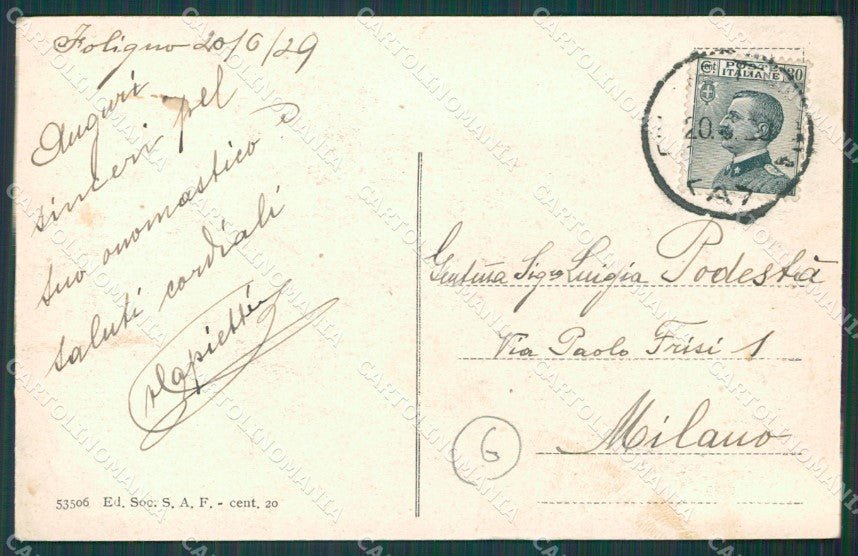 Foligno 20/6/29
Auguri
sinceri pel
suo onomastico e
saluti cordiali
Cent. POSTE 30
ITALIANE
20. 6. 29
Gentma Sigra Luigia Podestà
Via Paolo Frisi 1
Milano
6
53506 Ed. Soc. S. A. F. - cent. 20
CARTOLINOMANIA